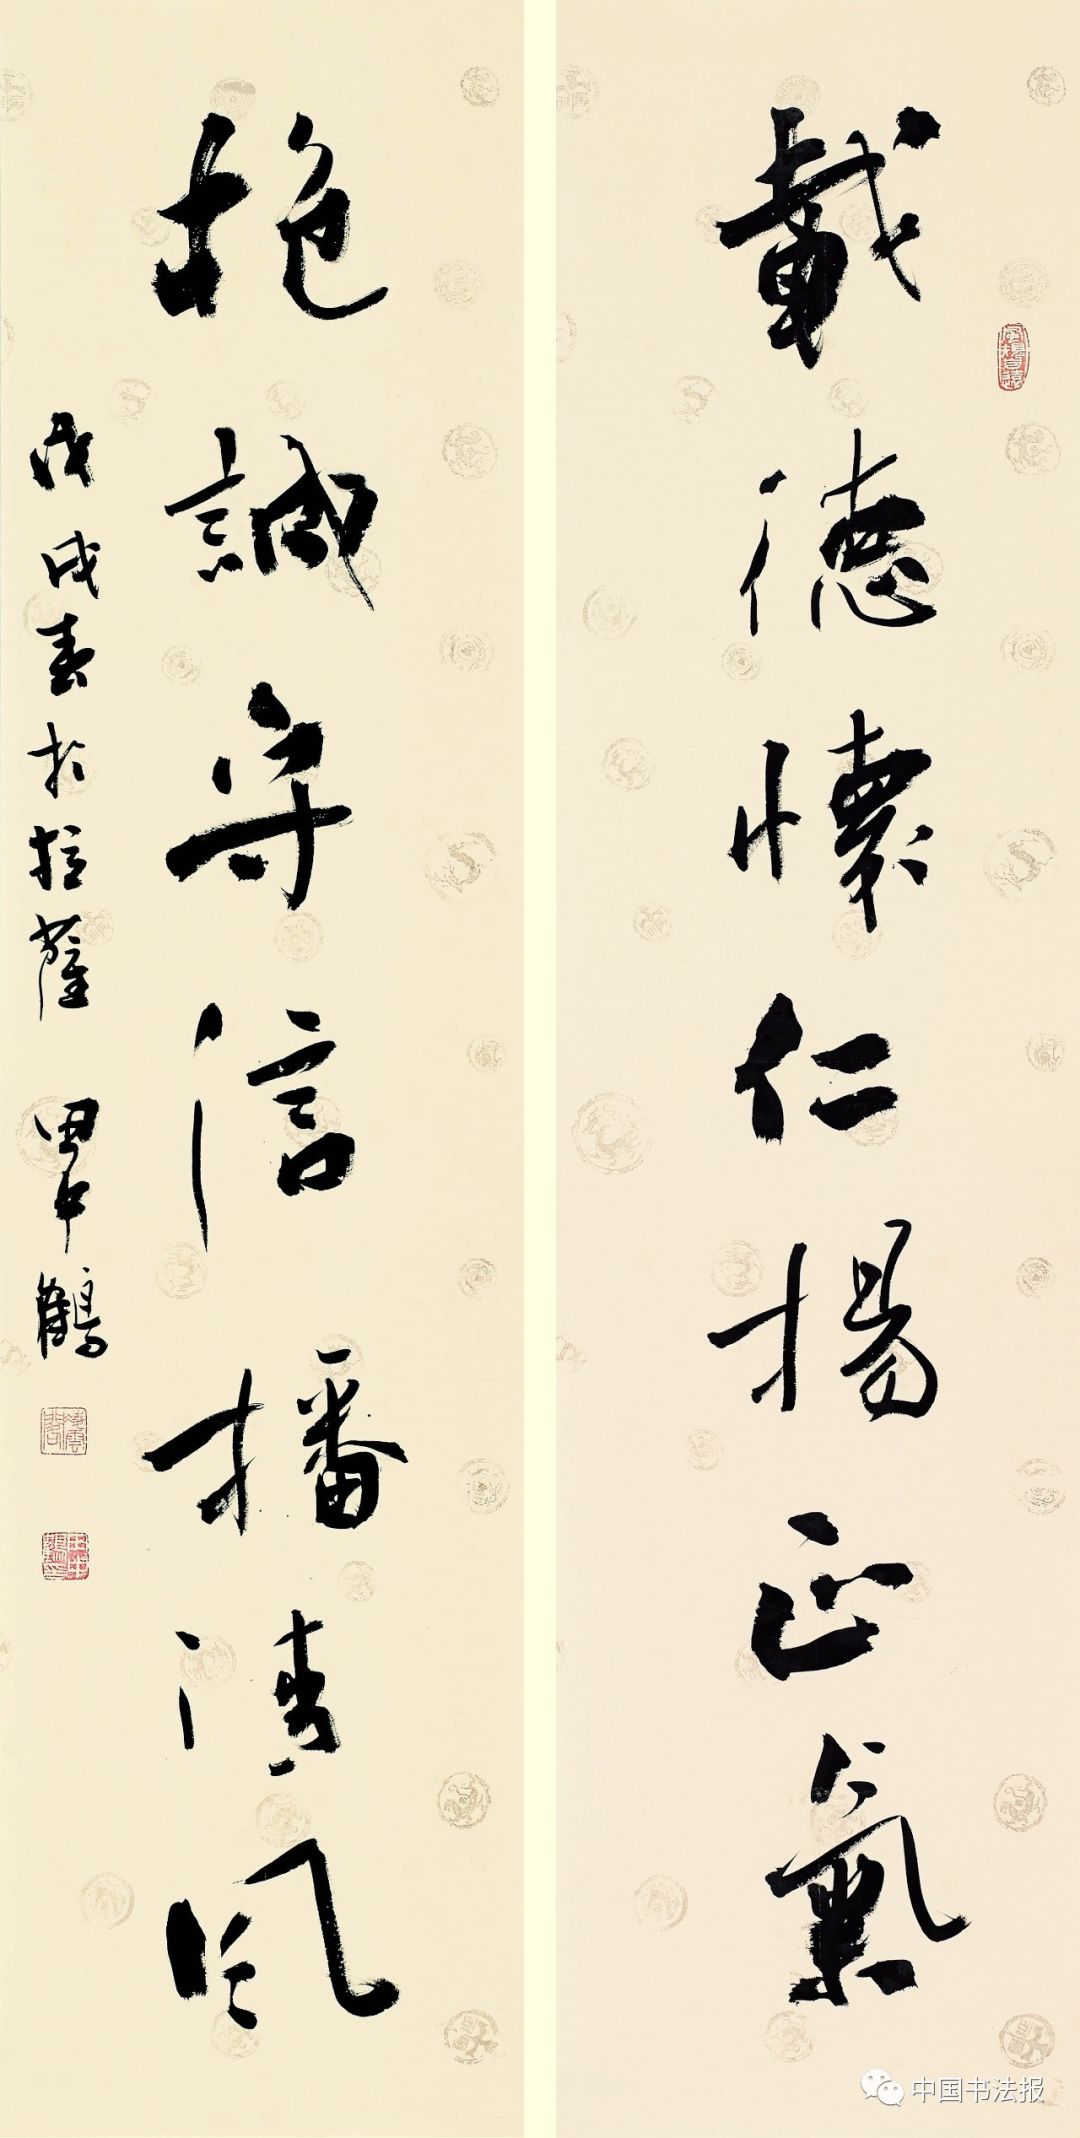 載德懷仁揚正氣
抱誠守信播清風
戊戌春於拉薩 覃中鶴
中国书法报